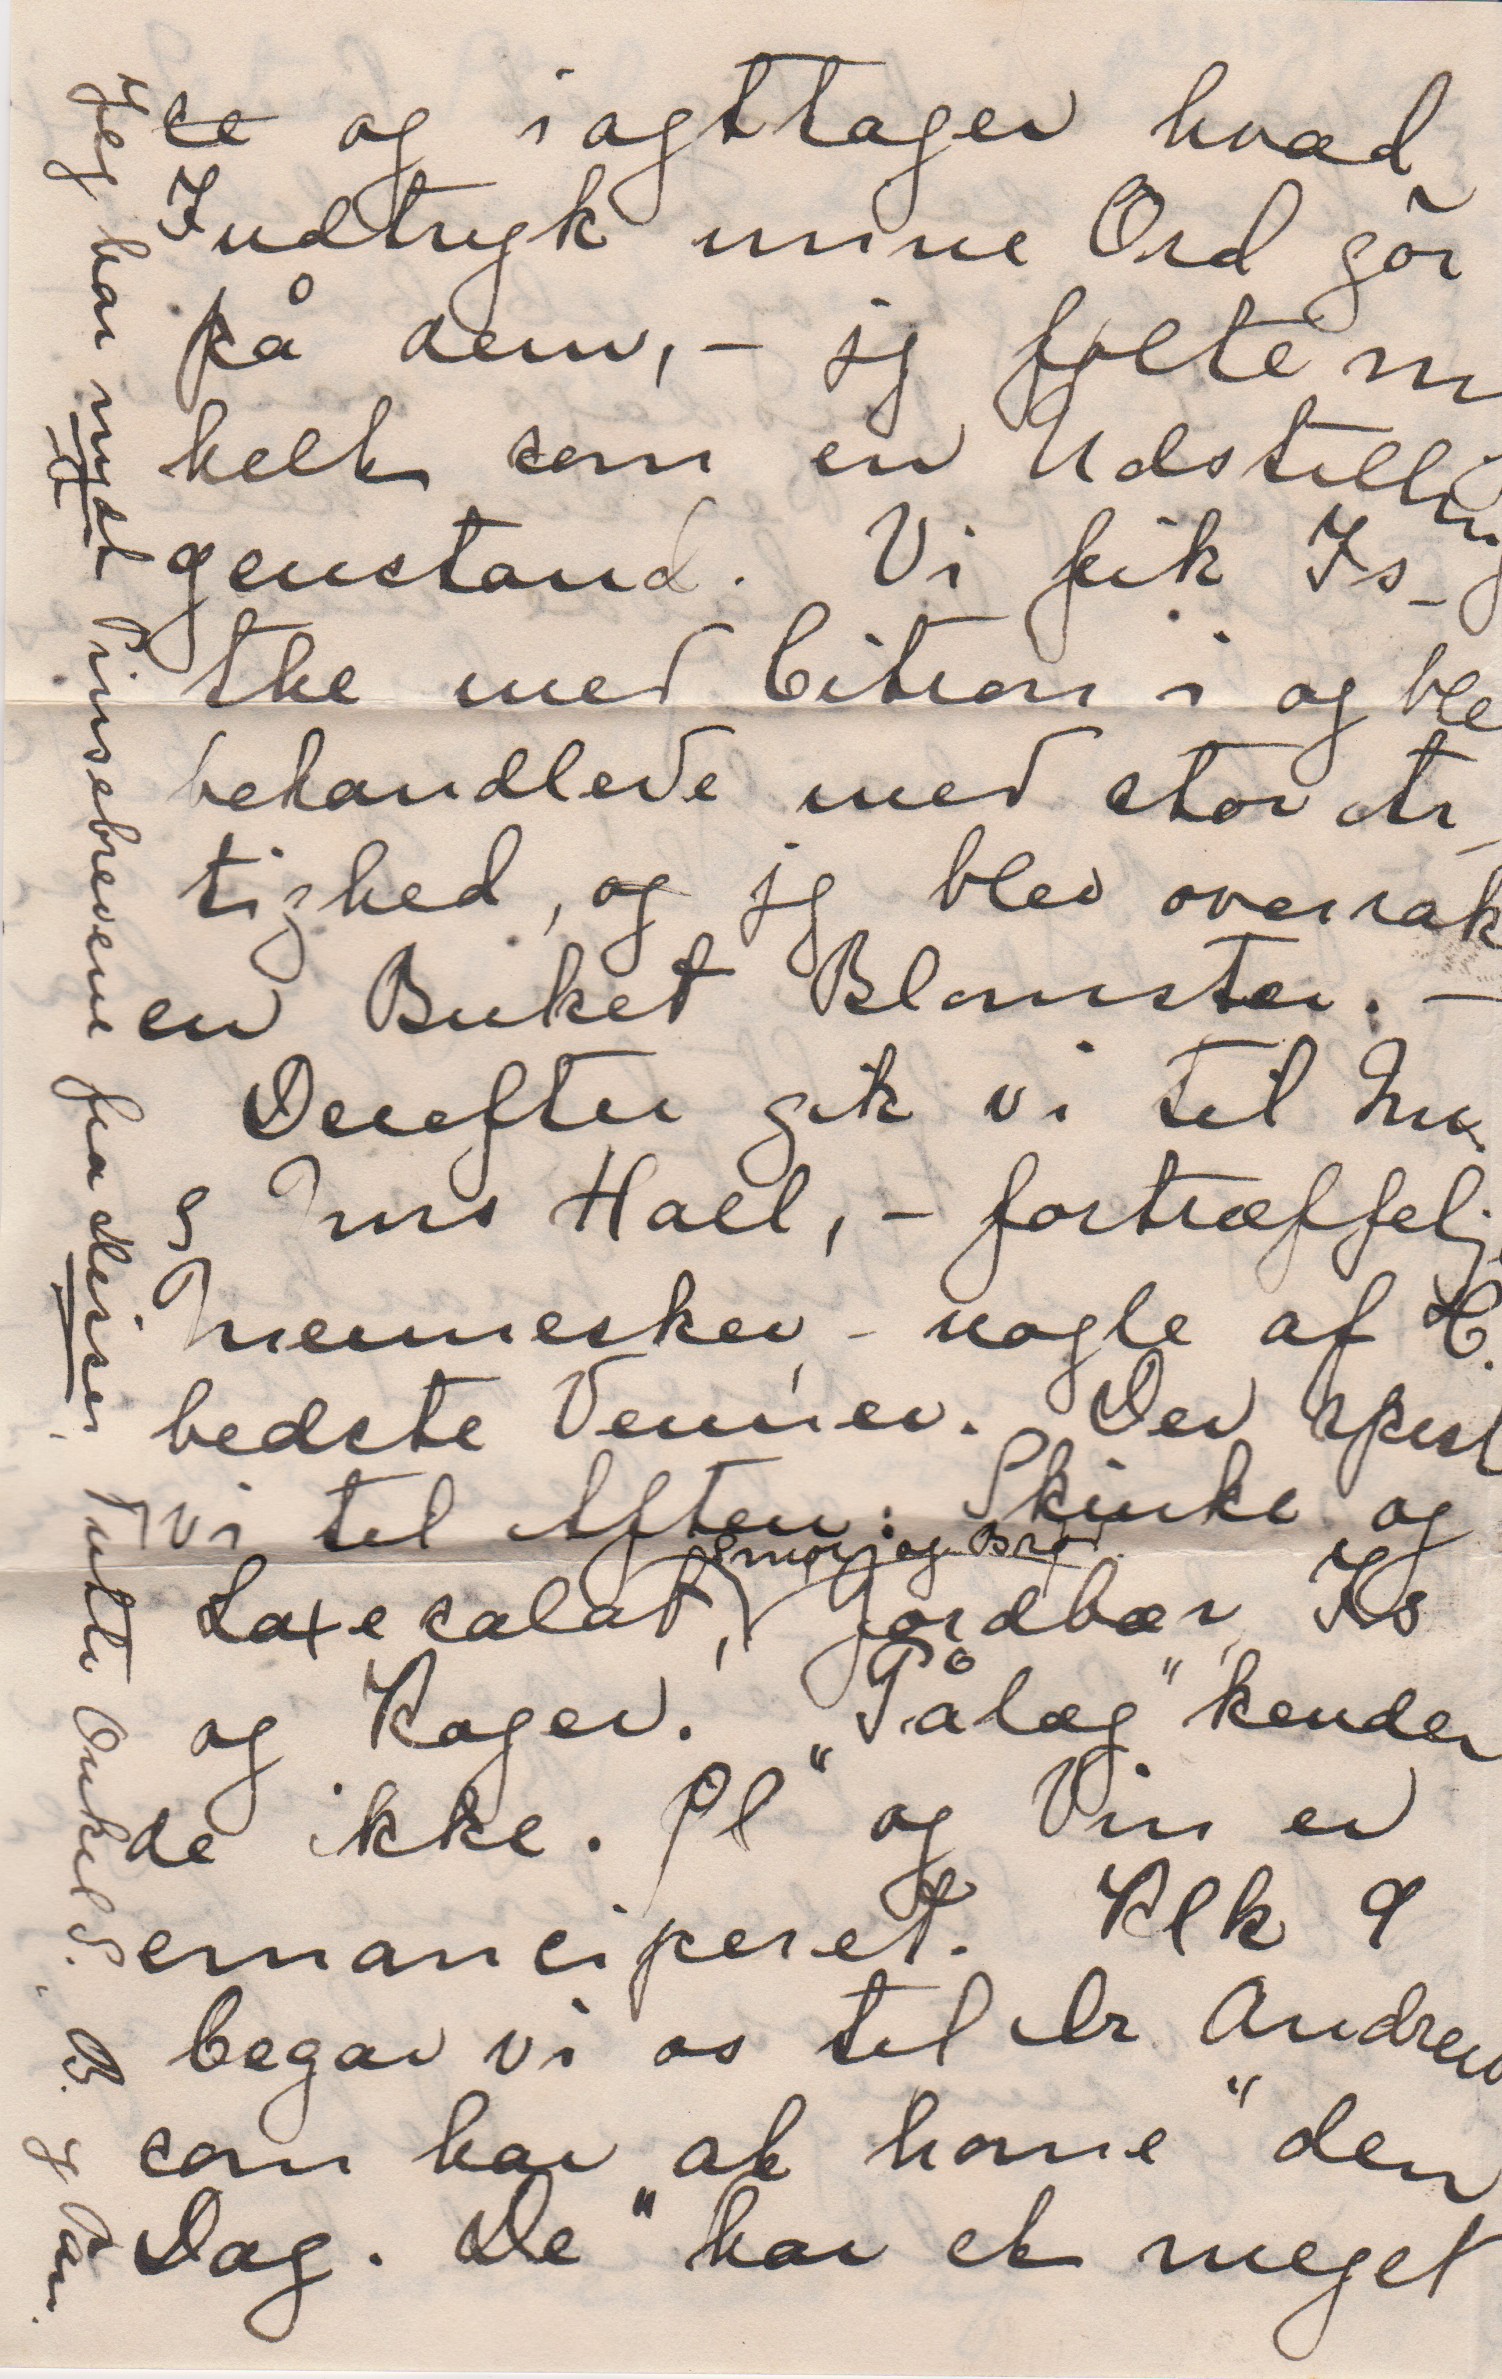 se og iagttager hvad
Indtryk mine Ord gör
på dem, – jeg følte m
helt som en Udstilling
genstand. Vi fik Is-
the med Citron i og ble
behandlede med stor Ar
tighed, og jeg blev overrak
en Buket Blomster. –
Derefter gik vi til Mr.
og Mrs Hall, – fortræffelj
Mennesker, – nogle af H.
bedste Venner. Der spist
vi til Aften: Skinke og
Smør og Brød
Laxesalat, Jordbær, Is
og Kager. "Pålæg" kender
de ikke. Øl og Vin er
emanciperet. Klk 9
begav vi os til Dr Andrew
som har "at home" den
Dag. De har et meget
Jeg har nydt Pinsebrevene fra deiser. Tutte Onkel S. B. og Par.